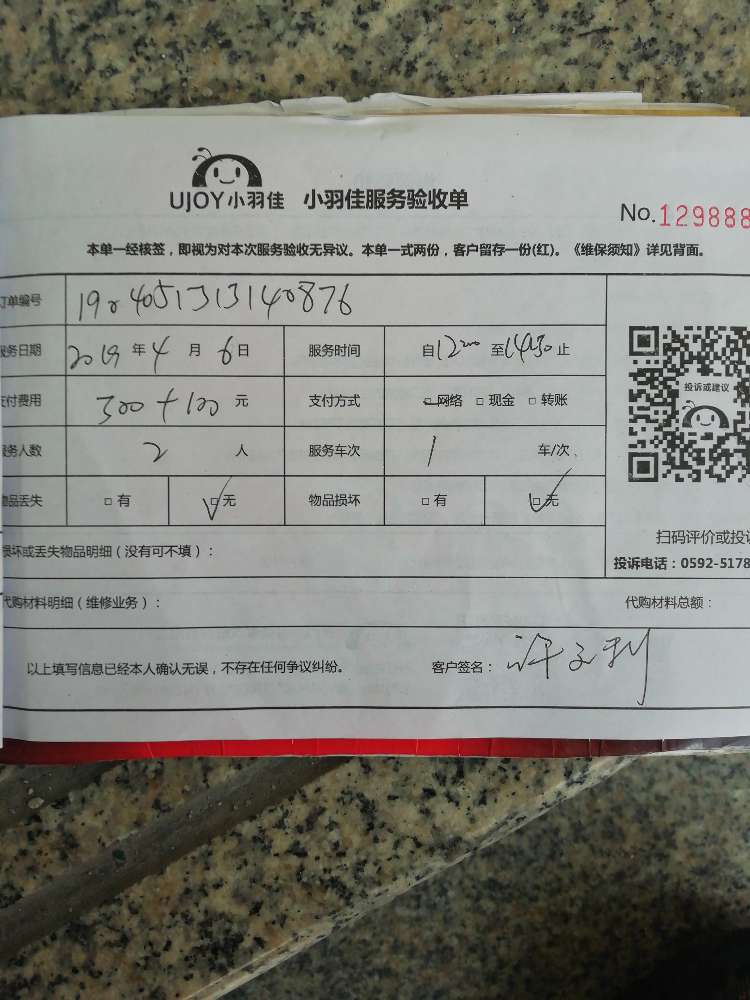 UJOY小羽佳 小羽佳服务验收单
No.129888
本单一经核签，即视为对本次服务验收无异议。本单一式两份，客户留存一份(红)。《维保须知》详见背面。
订单编号 1904051313140876
服务日期 2019 年 4 月 6 日 服务时间 自 12:00 至 14:30 止
支付费用 300+100 元 支付方式 □ 网络 □ 现金 □ 转账
服务人数 2 人 服务车次 1 车/次
物品丢失 □ 有 □ 无 物品损坏 □ 有 □ 无
投诉或建议
扫码评价或投诉
损坏或丢失物品明细（没有可不填）：
投诉电话：0592-5178
代购材料明细（维修业务）： 代购材料总额：
以上填写信息已经本人确认无误，不存在任何争议纠纷。 客户签名：